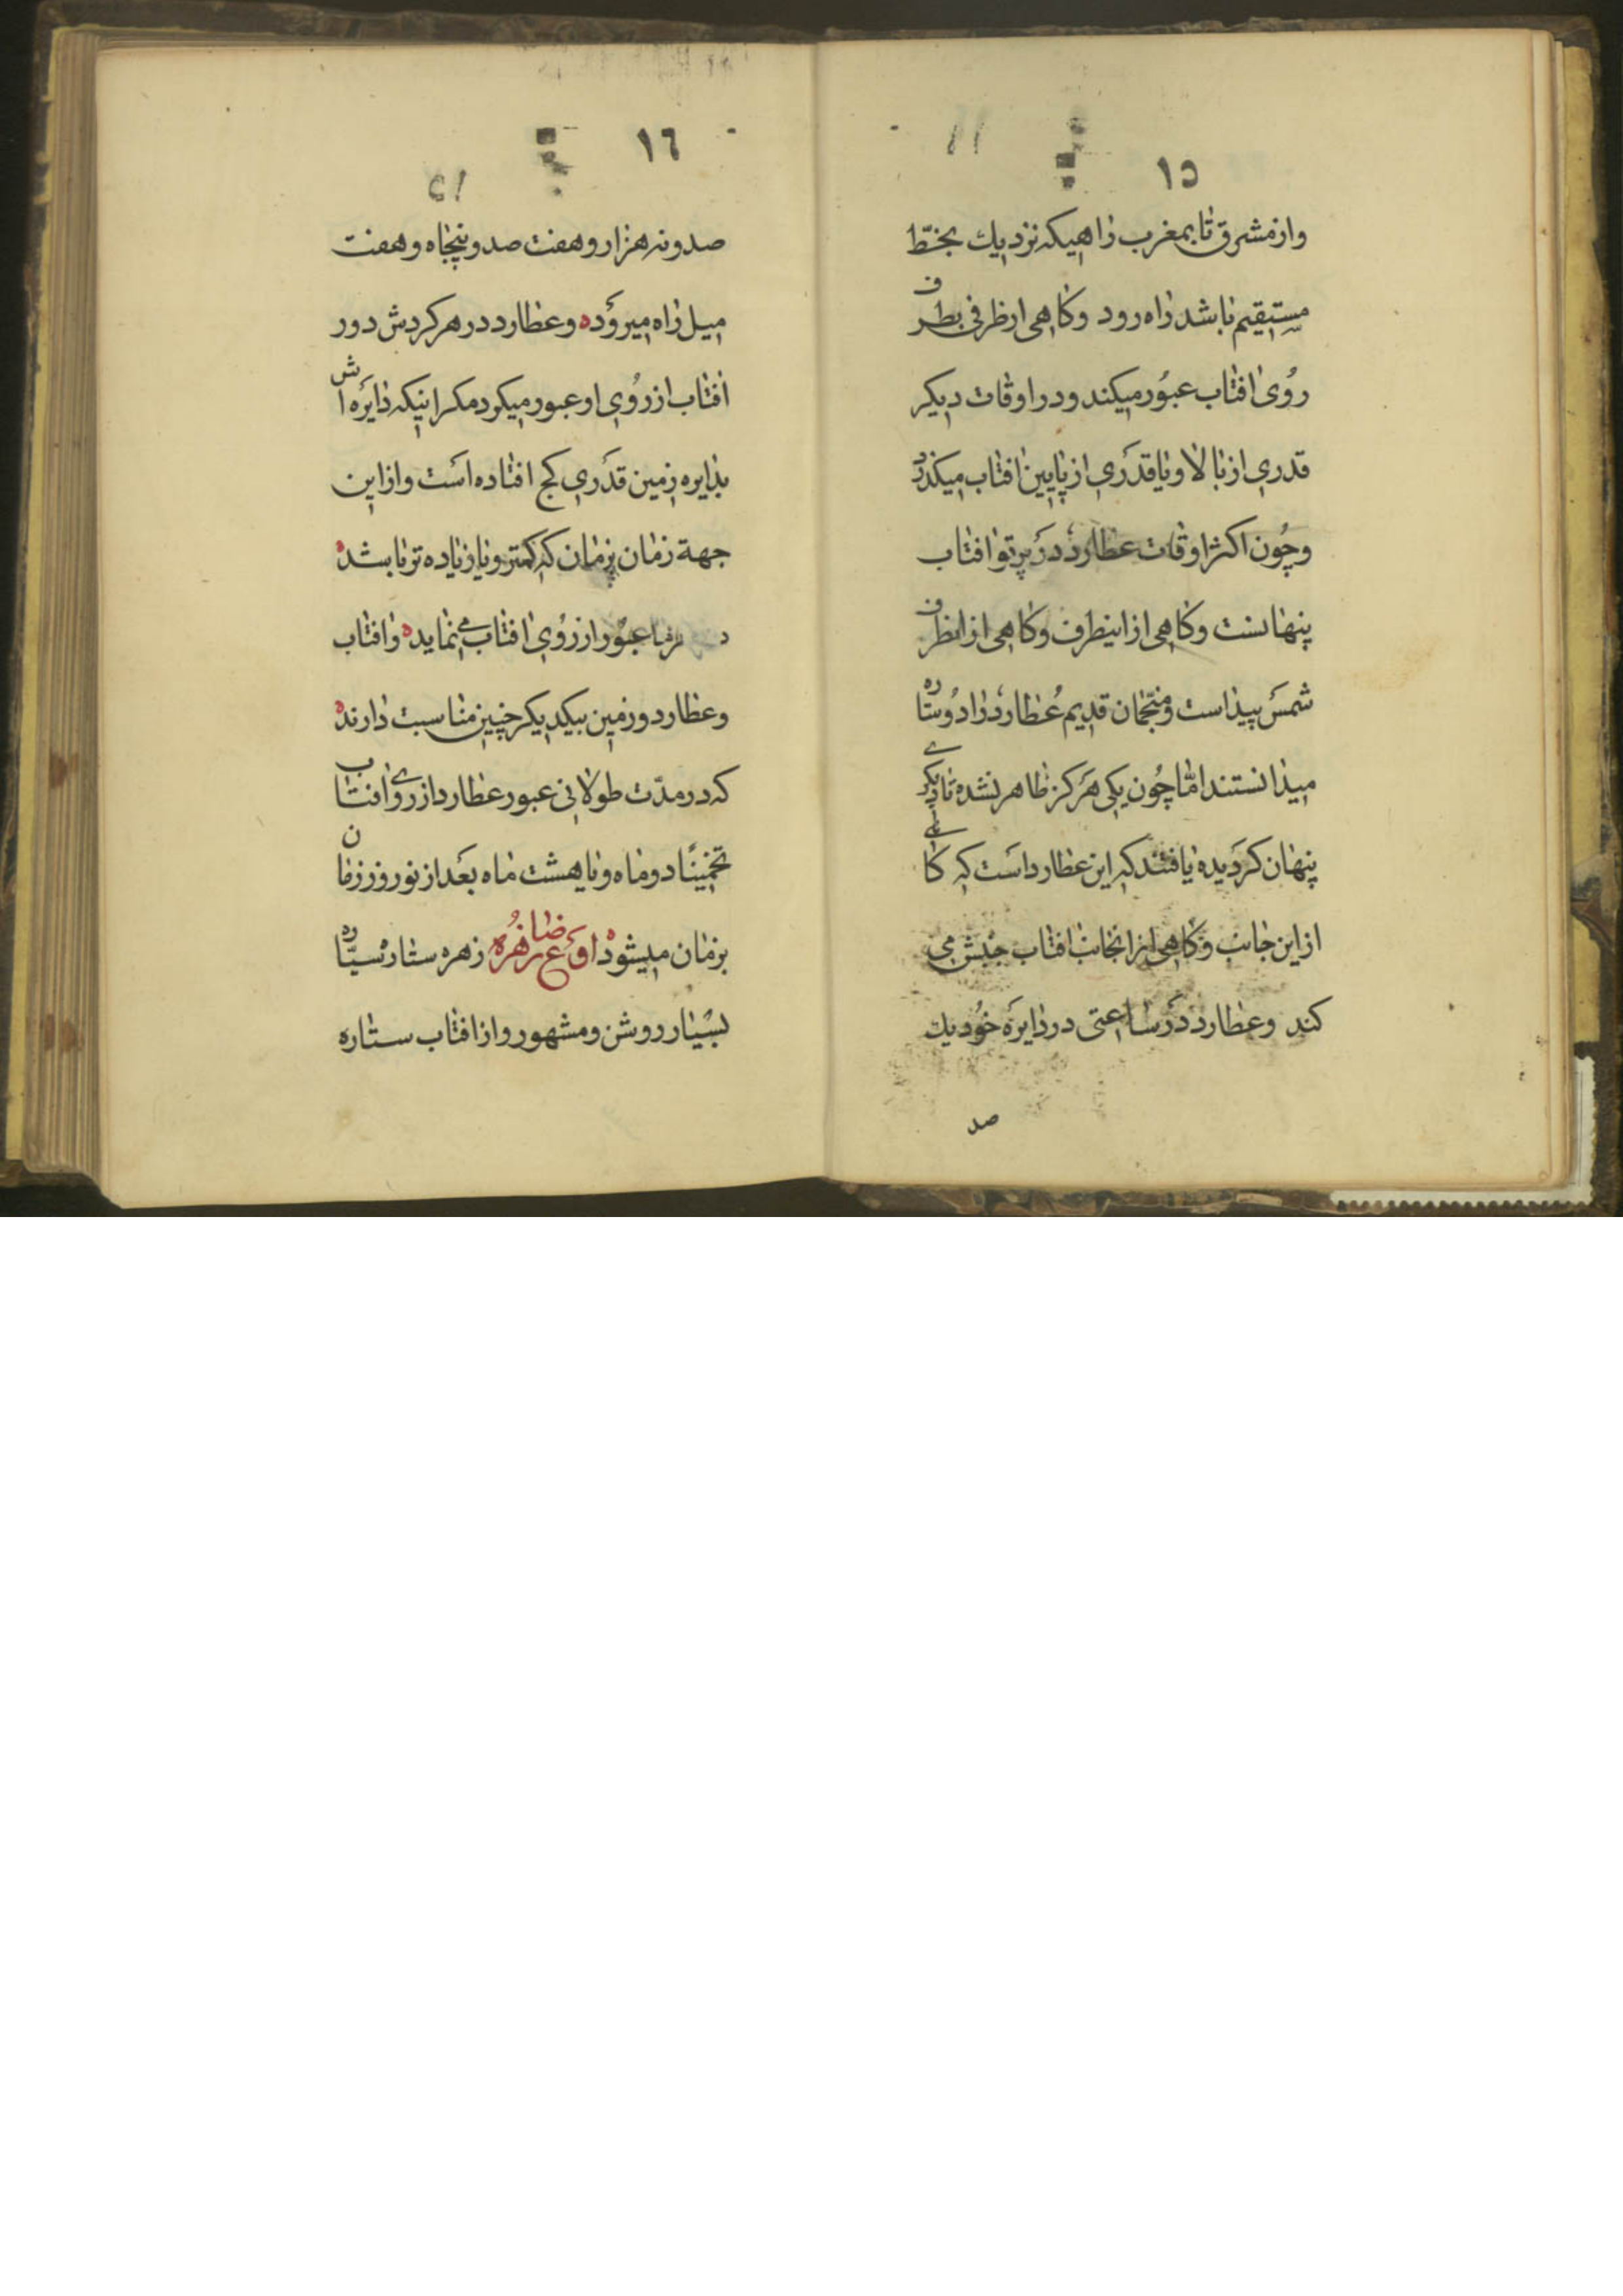 ١٥
واز مشرق تا بمغرب راهیکه نزدیك بخطّ
مستقیم باشد راه رود وکاهی ازطرفی بطرف
رُوی افتاب عبُور میکند ودر اوقات دیکر
قدری از بالا ویا قدَری از پایین افتاب میکذرد
وچُون اکثر اوقات عطارد درَ پرتو افتاب
پنهانست وکاهی از اینطرف وکاهی از انطرف
شمسَ پیدا است ومنجّمان قدیم عُطارد را دُوستاره
میدانستند امّا چُون یکی هَرکز ظاهر نشده تا دیکری
پنهان کرَدیده یافتند که این عطارد است که کاهی
از این جانب وکاهی از انجانب افتاب جنبش می
کند وعطارد درَ ساعتی در دایرَه خوُد یك
صد
١٦
صد ونه هزار وهفت صد وپنجاه وهفت
میل راه میروَد ه وعطارد در هر کردش دور
افتاب از رُوی او عبور میکرد مکر اینکه دایرَه اش
بدایره زمین قدَری کج افتاده است واز این
جهة زمان بزمان که کمتر ویا زیاده تر باشد ه
عبوُر از رُوی افتاب می نماید ه وافتاب
وعطارد وزمین بیکدیکر چنین مناسبت دارند ه
که در مدّت طولانی عبور عطارد از روی افتاب
تخمینًا دوماه ویا هشت ماه بعَد از نوروز زمان
بزمان میشود ه اوضاع زهُره زهره ستاره سیّاره
بسْیار روشن ومشهور واز افتاب ستاره